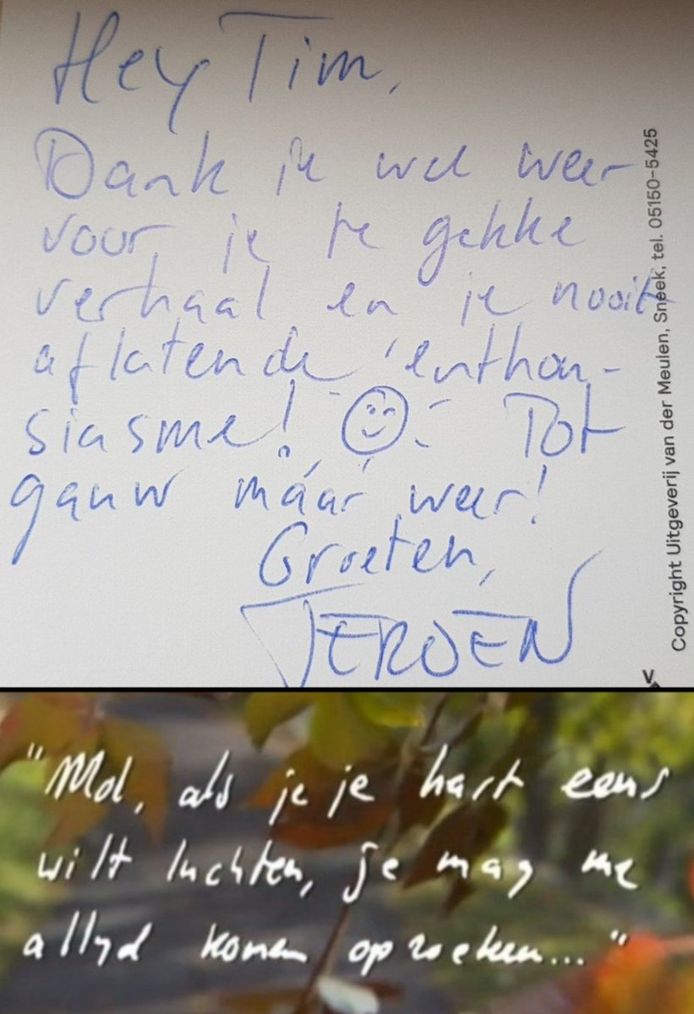 Hey Tim,
Dank je wel weer
voor je te gekke
verhaal en je nooit
aflatende enthou-
siasme! Tot
gauw máár weer!
Groeten,
JEROEN
Copyright Uitgeverij van der Meulen, Sneek, tel. 05150-5425
"Mol, als je je hart eens
wilt luchten, je mag me
altyd komen opzoeken..."